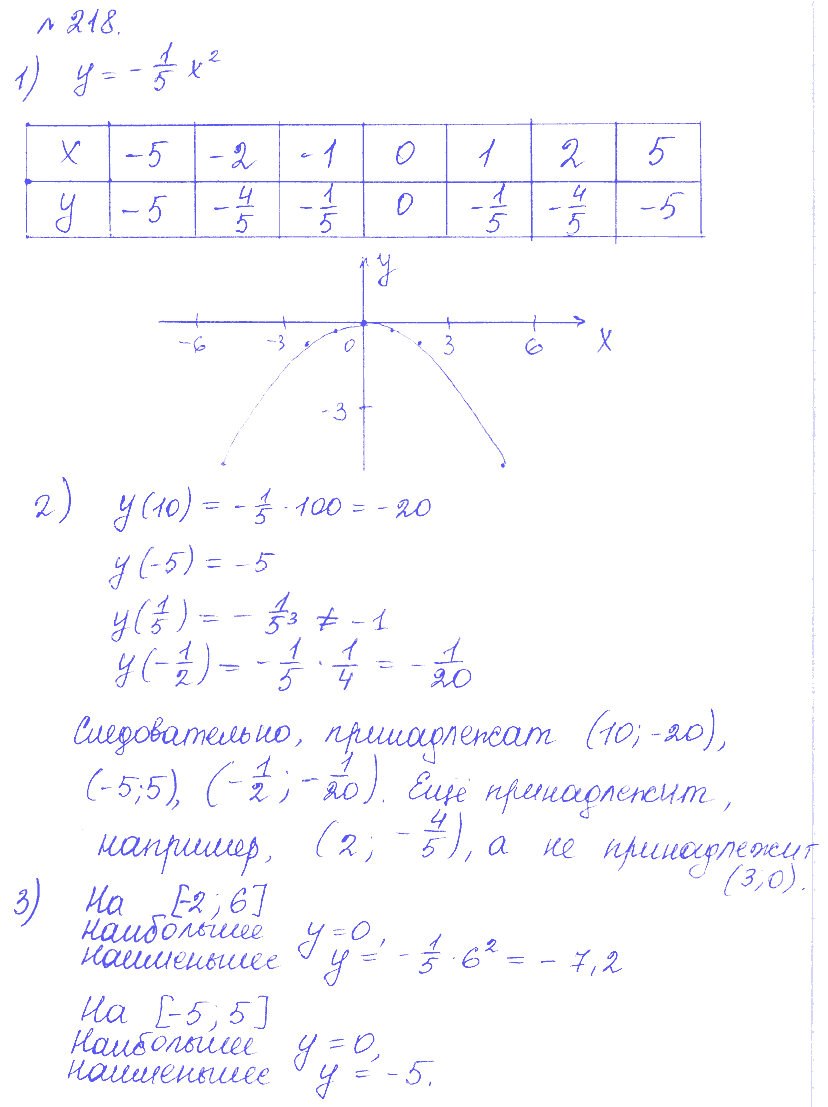 № 218.
1) y = -1/5 x²
x -5 -2 -1 0 1 2 5
y -5 -4/5 -1/5 0 -1/5 -4/5 -5
y
-6 -3 0 3 6 x
-3
2) y(10) = -1/5 · 100 = -20
y(-5) = -5
y(1/5) = -1/5³ ≠ -1
y(-1/2) = -1/5 · 1/4 = -1/20
Следовательно, принадлежат (10; -20),
(-5;5), (-1/2; -1/20). Ещё принадлежит,
например, (2; -4/5), а не принадлежит
(3;0).
3) На [-2; 6]
наибольшее y=0,
наименьшее y = -1/5 · 6² = -7,2
На [-5; 5]
наибольшее y=0,
наименьшее y = -5.